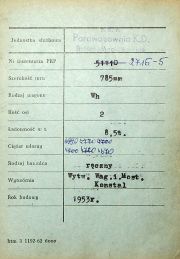 Jednostka służbowa Parowozownia K.D.
Nr inwentarza PKP 51140 2715-5
Szerokość toru 785mm
Rodzaj wagonu Wh
Ilość osi 2
Ładowność w t 8,5t.
Ciężar własny
Rodzaj hamulca ręczny
Wytwórnia Wytw. Wag.i.Most. Konstal
Rok budowy 1953r.